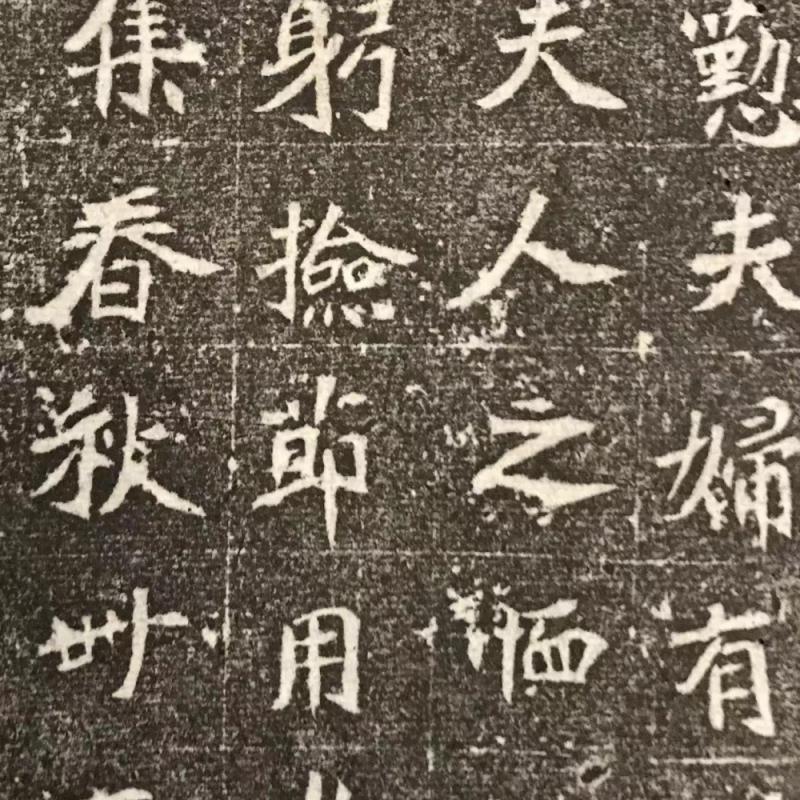 懃夫婦有
夫人之恤
躬撿節用
集春秋卌